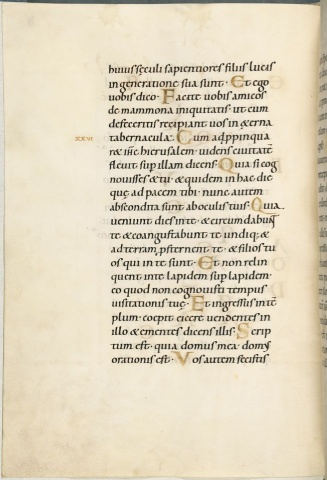 huius sęculi sapientiores filiis lucis
in generatione sua sunt· Et ego
uobis dico· Facite uobis amicos
de mammona iniquitatis· ut cum
defeceritis recipiant uos in &erna
tabernacula· Cum adp̄pinqua
XXVI
r& ih̄c hierusalem· uidens ciuitatē
fleuit sup illam dicens· Quia si cog
nouisses & tu· & quidem in hac die
quę ad pacem tibi· nunc autem
abscondita sunt ab oculis tuis· Quia
uenient dies in te· & circumdabun̄t
te· & coangustabunt te undiq;· &
ad terram p̄sternent te· & filios tu
os qui in te sunt· Et non relin
quent in te lapidem sup lapidem·
eo quod non cognouisti tempus
uisitationis tuę· Et ingressus in tē
plum· coepit eicere uendentes in
illo & ementes dicens illis· Scrip
tum est· quia domus mea· domus
orationis est· Vos autem fecistis